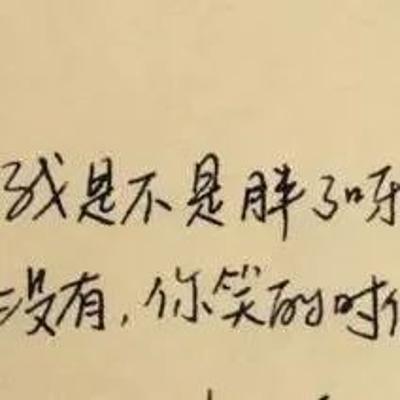 我是不是胖了呀
没有,你笑的时